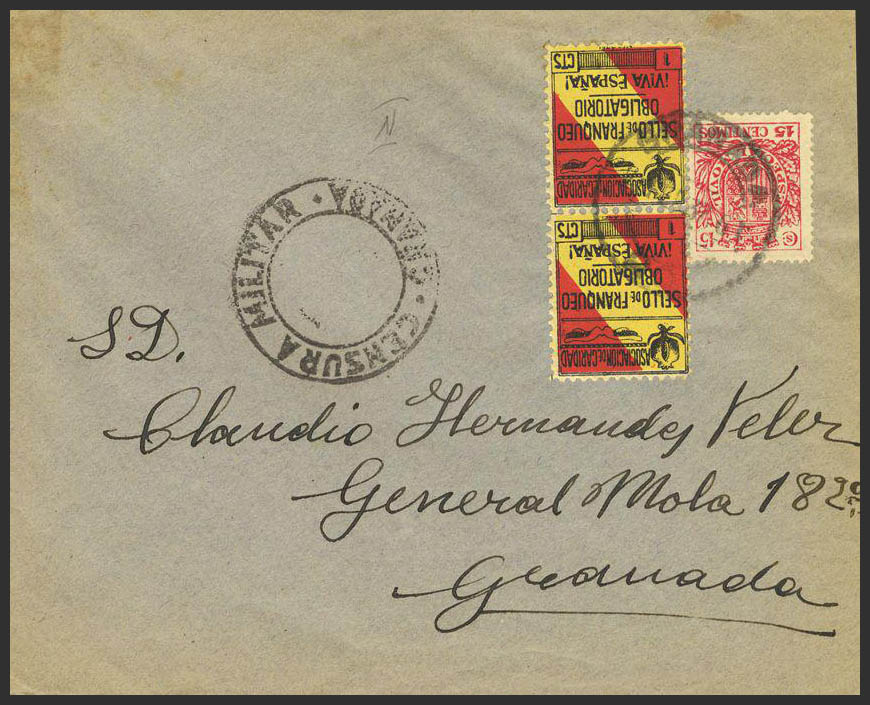 1 CTS
¡VIVA ESPAÑA!
SELLO DE FRANQUEO
OBLIGATORIO
ASOCIACION DE CARIDAD
1 CTS
¡VIVA ESPAÑA!
SELLO DE FRANQUEO
OBLIGATORIO
ASOCIACION DE CARIDAD
15 CENTIMOS
ESPECIAL MOVIL
15 Cs
CENSURA MILITAR · GRANADA ·
SD.
Claudio Hernandez Velez
General Mola 18 2º
Granada